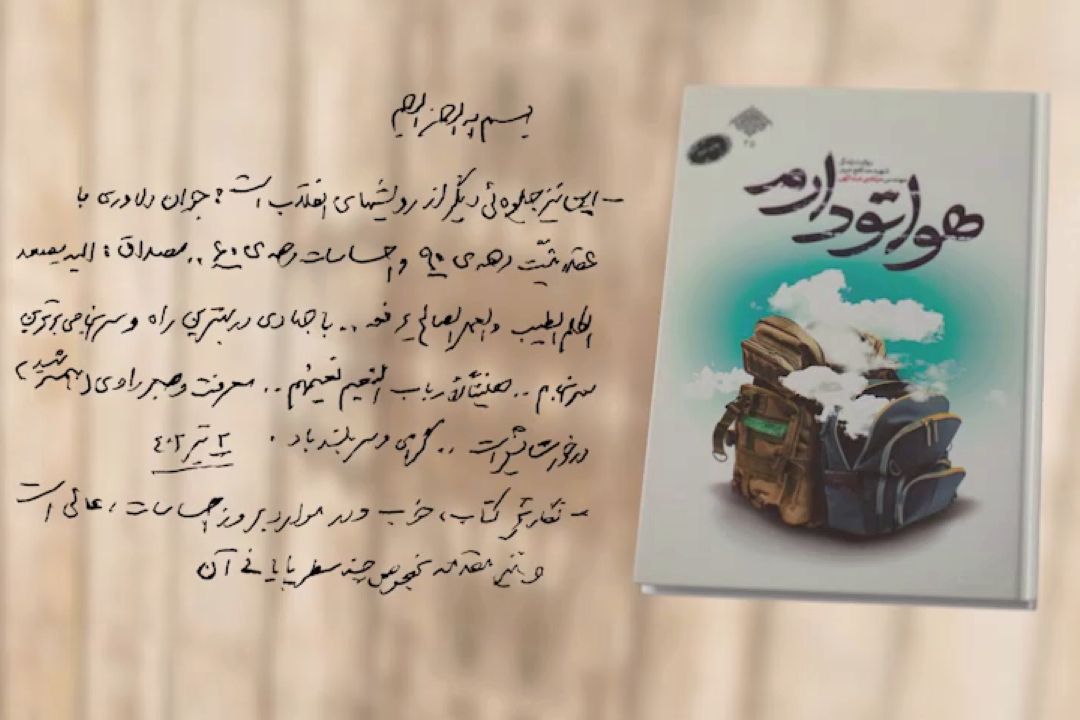 بسم الله الرحمن الرحیم
- این نیز جلوه‌ئی دیگر از رویشهای انقلاب است؛ جوان دلاوری با
عقلانیّت دهه‌ی ۹۰ و احساسات دهه‌ی ۶۰ .. مصداق: الیه یصعد
الکلم الطیب والعمل الصالح یرفعه .. با جهادی در بهترین راه و سرانجامی برترین
سرانجام .. هنیئاً لارباب النعیم نعیمهم .. معرفت و صبر راوی (همسر شهید)
درخور ستایش است .. گرامی و سربلند باد.
۳ تیر ۴۰۲
- نگارش کتاب، خوب و در موارد بروز احساسات، عالی است
و نیز مقدمه بخصوص چند سطر پایانی آن
هواتو دارم
۲۵